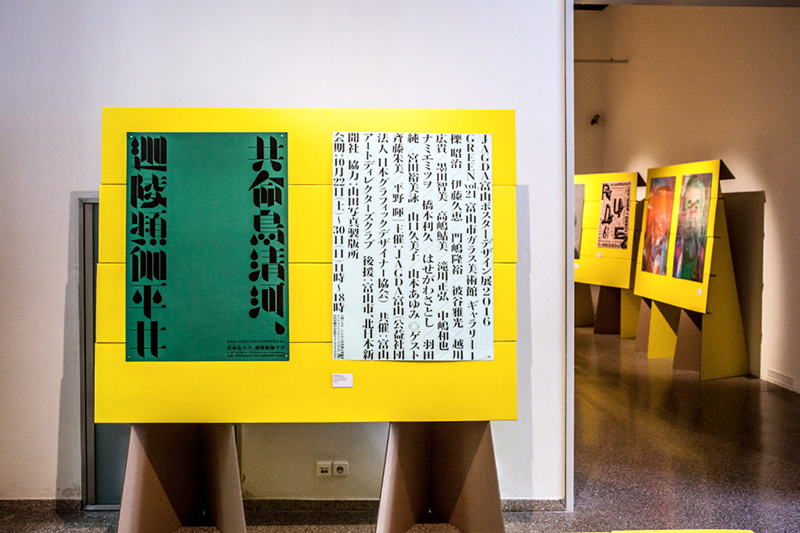 共命鳥清河、
迦陵頻伽平井
JAGDA富山ポスターデザイン展2016
GREEN vol.21 富山市ガラス美術館 ギャラリー1
櫟 昭治/伊藤久恵/門嶋隆裕/波谷雅光/越川
広貴/墨田智美/高嶋鮎美/滝川正弘/中嶋和也/
ナミエミツヲ/橋本利久/はせがわさとし/羽田
純/宮田裕美詠/山口久美子/山本あゆみ◎ゲスト
斉藤朱美/平野 暉|主催:JAGDA富山(公益社団
法人日本グラフィックデザイナー協会) 共催:富山
アートディレクターズクラブ 後援:富山市/北日本新
聞社 協力:山田写真製版所
会期:10月22日[土]〜30日[日]11時〜18時